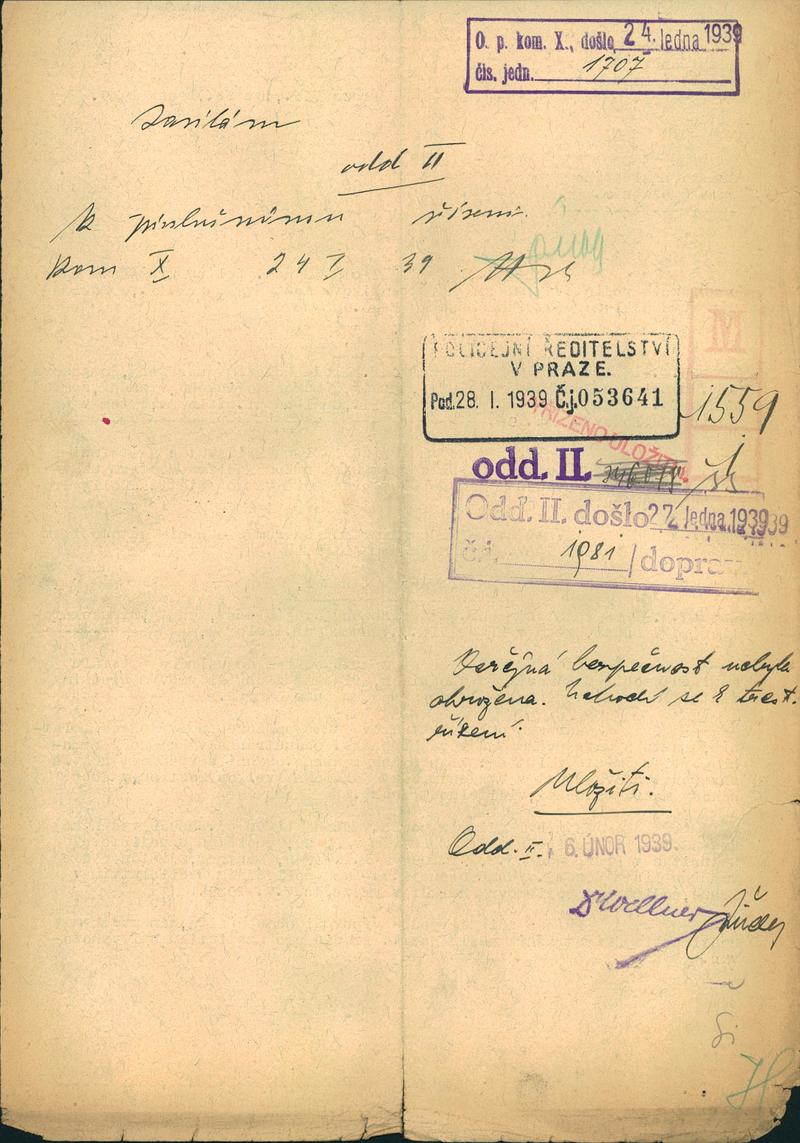 O. p. kom. X., došlo 24. ledna 1939
čís. jedn. 1707
Zasílám
odd II
k příslušnému řízení.
Kom X 24 I 39
M
POLICEJNÍ ŘEDITELSTVÍ
V PRAZE.
Pod. 28. I. 1939 Č.j. 053641
1559
odd. II.
Odd. II. došlo 27. ledna 1939 39
č.j. 1981 / doprav
Veřejná bezpečnost nebyla
ohrožena. Nehodí se k trest.
řízení.
Uložiti.
Odd. II. 6. ÚNOR 1939.